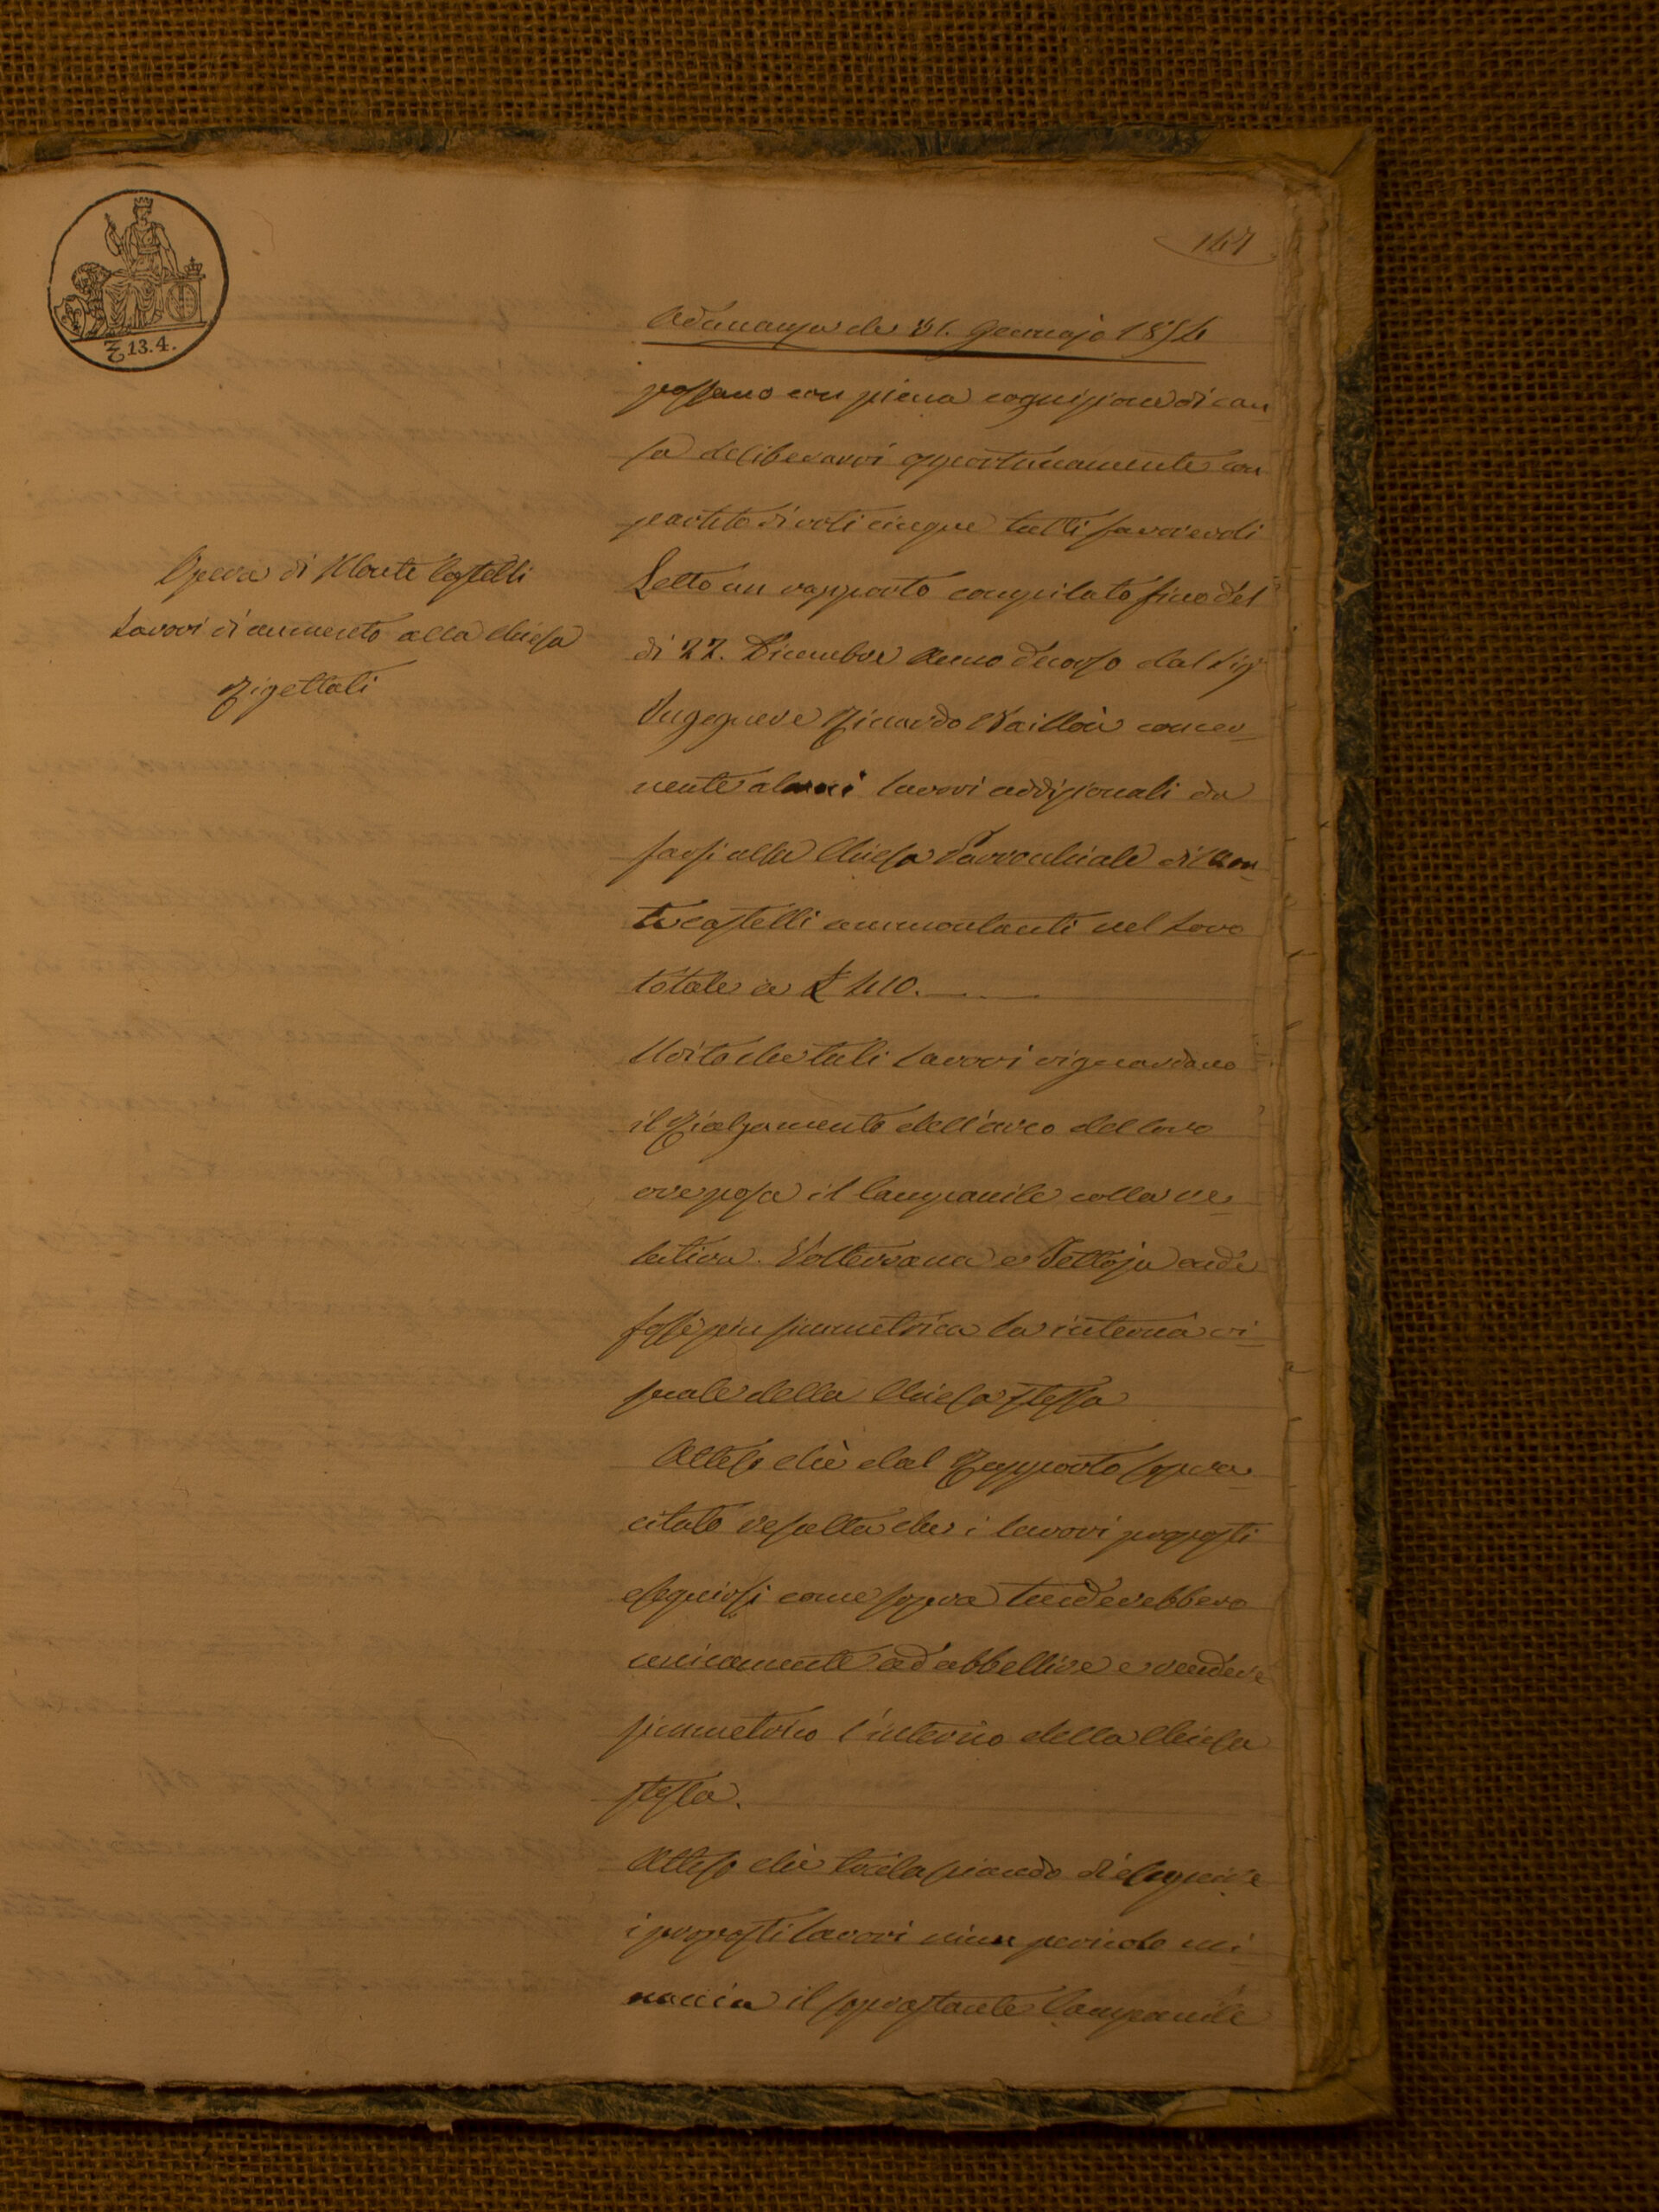 13.4.
147
Adunanza de' 31. Gennajo 1854
possano con piena cognizione di cau
sa deliberarvi opportunamente con
partito di voti cinque tutti favorevoli
Opera di Monte Castelli
Lavori di aumento alla Chiesa
Rigettati
Letto un rapporto compilato fino del
dì 22. Dicembre Anno decorso dal Sig
Ingegnere Ricardo concer
nente alcuni lavori addizionali da
farsi alla Chiesa Parrocchiale di Mon
tecastelli ammontanti nel loro
totale a £ 410.
Udito che tali lavori riguardano
il Rialzamento dell'arco del coro
ove posa il Campanile colla re
lativa Volterrana e Tettoja onde
fosse più simmetrica la interna vi
suale della Chiesa stessa
Atteso chè dal Rapporto sopra
citato resulta che i lavori proposti
eseguirsi come sopra tenderebbero
unicamente ad abbellire e rendere
simmetrico l'interno della Chiesa
stessa.
Atteso chè tralasciando di eseguire
i proposti lavori niun pericolo mi
naccia il soprastante Campanile